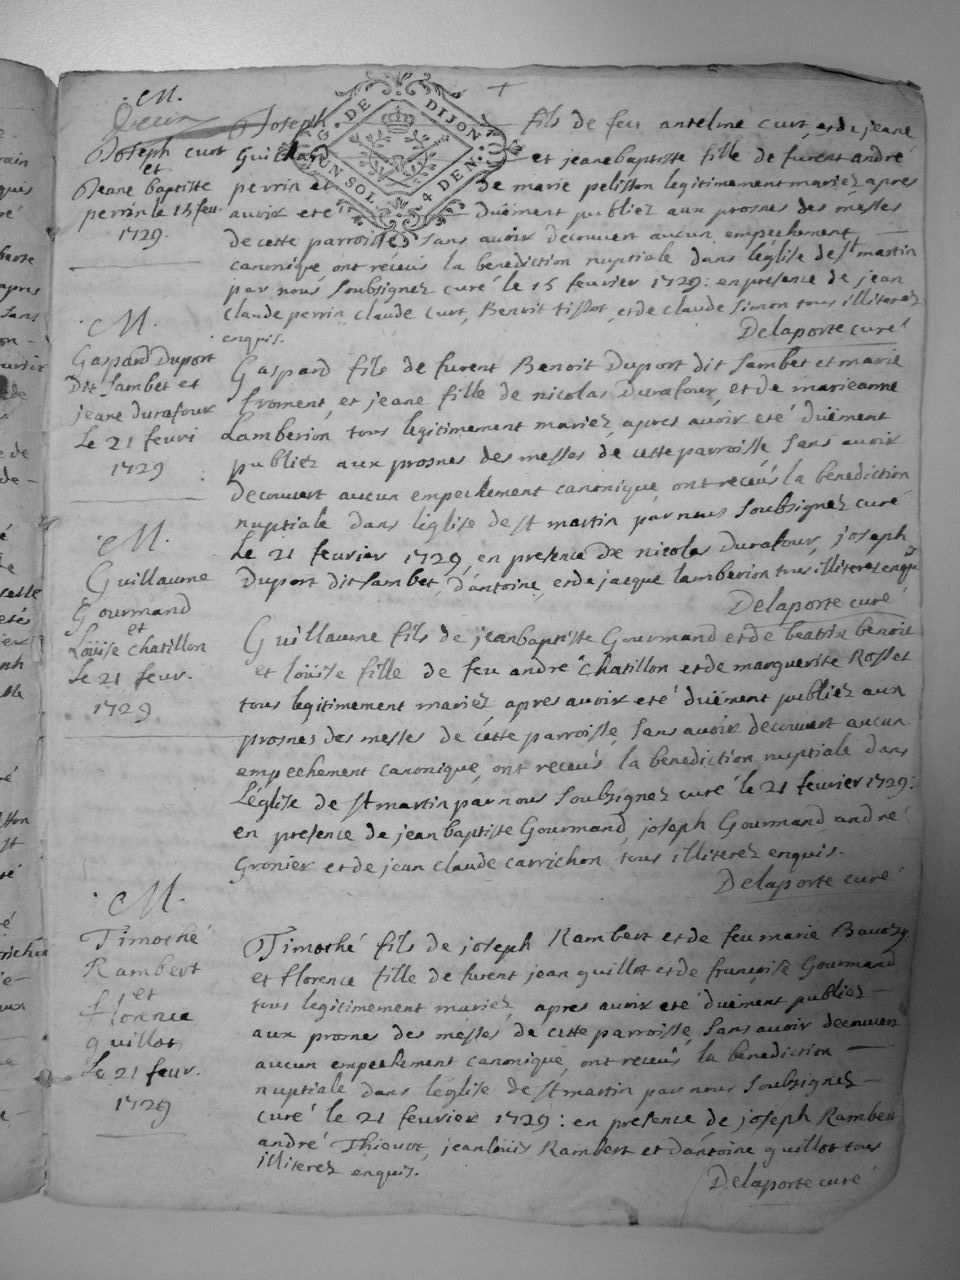 M.
Joseph curt
et
Jeane baptiste
perrin le 15 feu.
1729.
G. DE DIJON
UN SOL. 4 DEN.
Joseph fils de feu antelme curt, et de jeane
Guichard et jeane baptiste fille de furent andré
perrin et de marie pelisson legitimement mariez apres
avoir eté duëment publiez aux prosnes des messes
de cette parroisse, sans avoir decouvert aucun empechement
canonique ont réceus la benediction nuptiale dans l'église de st martin
par nous soubsignez curé le 15 feurier 1729: en presence de jean
claude perrin claude curt, Benoit tissot, et de claude simon tous illiterez
enquis.
Delaporte curé
M.
Gaspard Duport
Dit sambet et
jeane durafour
Le 21 feuri
1729
Gaspard fils de furent Benoit Duport dit sambet et marie
froment, et jeane fille de nicolas Durafour, et de marieanne
Lamberion tous legitimement mariez, apres avoir eté duëment
publiez aux prosnes des messes de cette parroisse, sans avoir
decouvert aucun empechement canonique, ont receüs la benediction
nuptiale dans l'église de st martin par nous soubsignez curé
le 21 feurier 1729, en presence de nicolas durafour, joseph
Duport dit sambet, d'antoine, et de jacque lamberion tous illiterez enquis
Delaporte curé
M.
Guillaume
Gourmand
et
Loüise chatillon
Le 21 feur.
1729
Guillaume fils de jeanbaptiste Gourmand et de beatrix benoit
et loüise fille de feu andré chatillon et de marguerite Rosset
tous legitimement mariez, apres avoir eté duëment publiez aux
prosnes des messes de cétte parroisse, sans avoir decouvert aucun
empechement canonique, ont receüs la benediction nuptiale dans
L'église de st martin par nous soubsignez curé le 21 feurier 1729:
en presence de jean baptiste Gourmand, joseph Gourmand, andré
Gronier et de jean claude carrichon, tous illiterez enquis.
Delaporte curé
M.
Timothé
Rambert
et
florence
guillot
Le 21 feur.
1729
Timothé fils de joseph Rambert et de feu marie
et florence fille de furent jean guillot et de françoise Gourmand
tous legitimement mariez, apres avoir eté duëment publiez
aux prosnes des messes de cette parroisse, sans avoir decouvert
aucun empechement canonique, ont receüs la benediction
nuptiale dans l'église de st martin par nous soubsignez
curé le 21 feurier 1729: en presence de joseph Rambert
andré jeanlouis Rambert et d'antoine guillot tous
illiterez enquis.
Delaporte curé